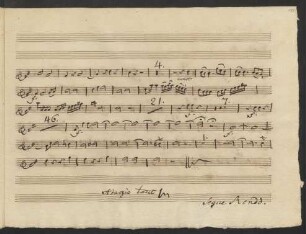 4.
21.
7.
46.
Adagio tacet
Segue Rondo.